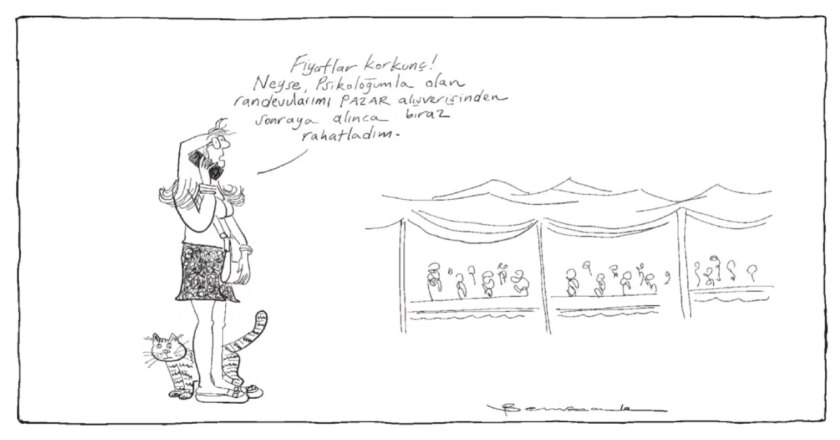 Fiyatlar korkunç!
Neyse, Psikoloğumla olan
randevularımı PAZAR alışverişinden
sonraya alınca biraz
rahatladım.